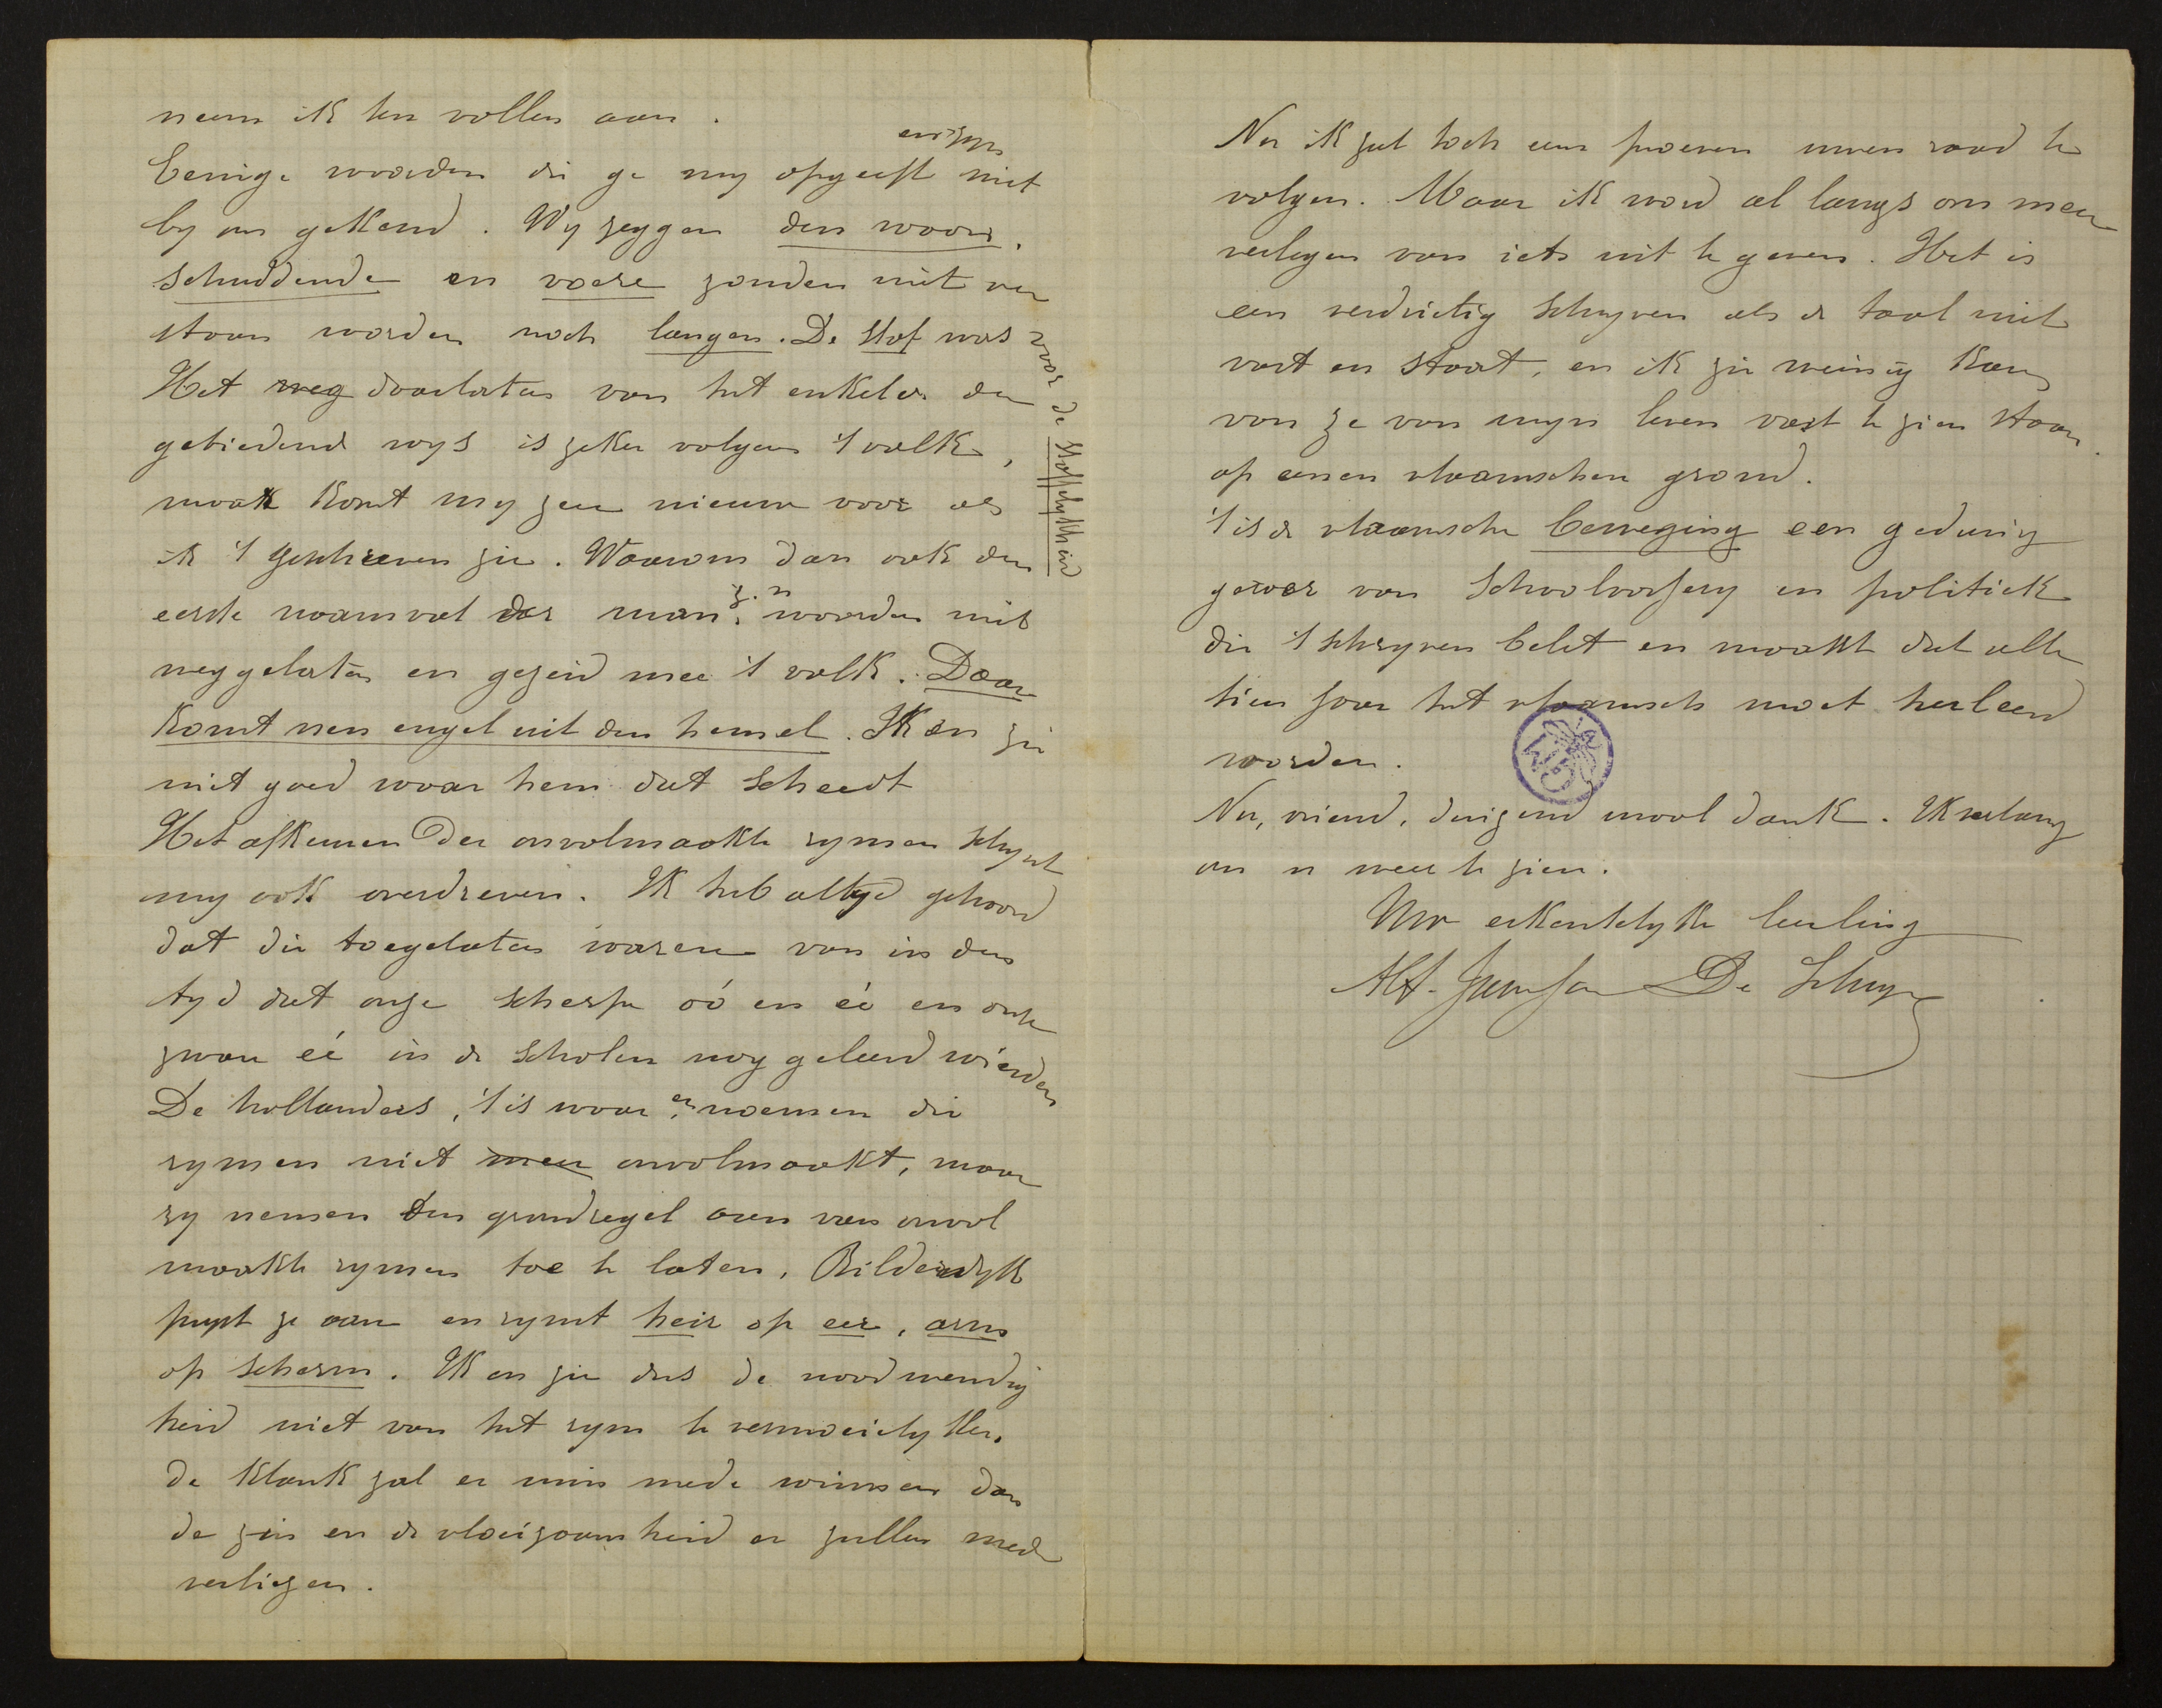 neem ik ten vollen aan.
Eenige woorden die ge my opgeeft en zyn niet
by ons gekend. Wy zeggen den woord.
schuddende en voere zouden niet ver
staan worden noch langen. De stof was voor de stoffelykheid
Het weg doorlaten van het enkel en den
gebiedend wys is zeker volgens 't volk,
maar komt my zeer nieuw voor als
ik 't geschreven zie. Waarom dan ook den
eerste naamval der man. z. n. woorden niet
weggelaten en gezeid mee 't volk. Daar
komt nen engel uit den hemel. Ik en zie
niet goed waar hem dat scheedt
Het afkeuren der onvolmaakte rymen schynt
my ook overdreven. Ik heb altyd gehoord
dat die toegelaten waren van in den
tyd dat onze scherpe oó en eé en onze
zware eé in de scholen nog geleerd wierden
De hollanders, 't is waar, en noemen die
rymen niet meer onvolmaakt, maar
zy nemen den grondregel aan van onvol
maakte rymen toe te laten, Bilderdyk
prypt ze aan en rymt heir op eer, arm
op scherm. Ik en zie dus de noodwendig
heid niet van het rym te vermoeielyken.
de klank zal er min mede winnen dan
de zin en de vloeizaamheid er zullen mede
verliezen.
Nu ik zal toch eens proeven uwen raad te
volgen. Maar ik word al langs om meer
verlegen van iets uit te geven. Het is
een verdrietig schryven als de taal niet
vast en staat, en ik zie weinig kans
van ze van myn leven vast te zien staan
op eenen vlaamschen grond.
't is de vlaamsche beweging een gedurig
gewoer van schoolvossery en politiek
die 't schryven belet en maakt dat alle
tien jaar het vlaamsch moet herleerd
worden.
Nu, vriend, duizend maal dank. Ik verlang
om u weer te zien.
Uw erkentelyke leerling
Alf. Janssen De Schuy